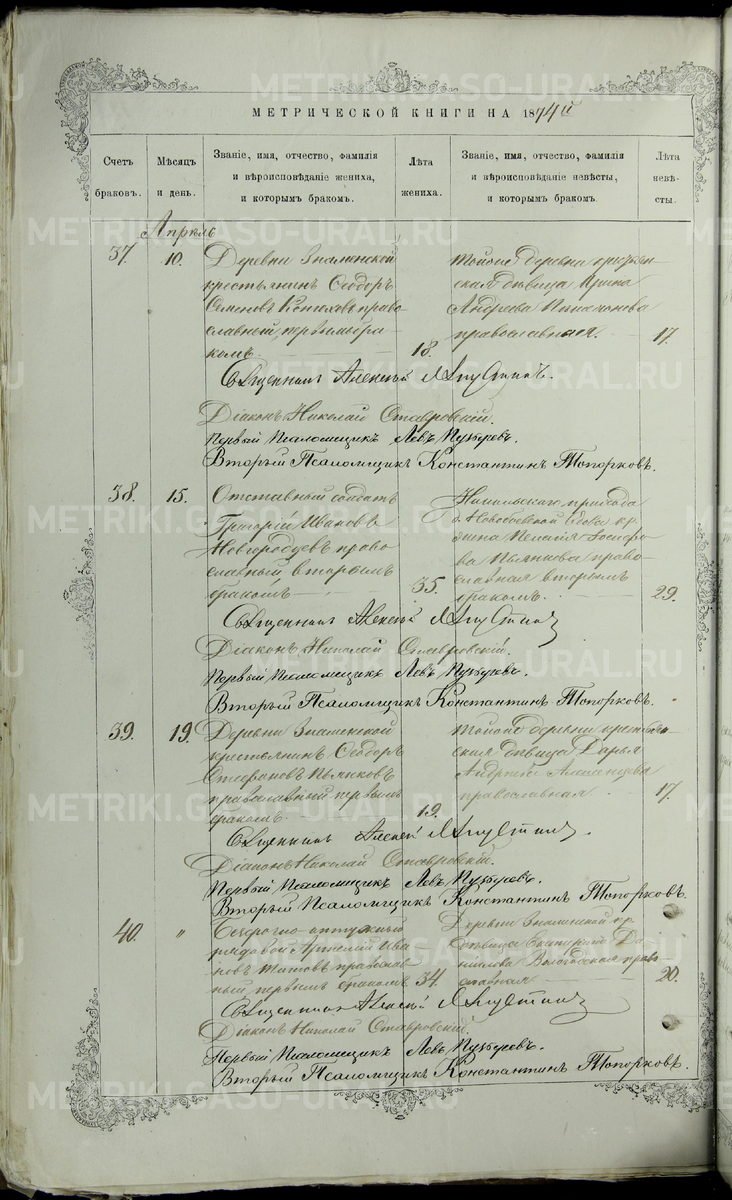 МЕТРИЧЕСКОЙ КНИГИ НА 1874й
Счетъ браковъ.
Мѣсяцъ и день.
Званіе, имя, отчество, фамилія и вѣроисповѣданіе жениха, и которымъ бракомъ.
Лѣта жениха.
Званіе, имя, отчество, фамилія и вѣроисповѣданіе невѣсты, и которымъ бракомъ.
Лѣта невѣсты.
Апрѣль
37. 10.
Деревни Знаменской
крестьянинъ Ѳеодоръ
Семеновъ право
славный, первымъ бра
комъ. 18.
тойже деревни крестьян
ская дѣвица Ирина
Андреева
православная. 17.
Священникъ Алексей
Діаконъ Николай Ставровскій.
Первый Псаломщикъ Левъ Пузыревъ.
Вторый Псаломщикъ Константинъ Топорковъ.
38. 15.
Отставный солдатъ
Григорій Ивановъ
Новгородцевъ право
славный, вторымъ
бракомъ 35.
прихода
вдова кр
Пелагія Іосифо
ва Пьянкова право
славная вторымъ
бракомъ. 29.
Священникъ Алексей
Діаконъ Николай Ставровскій.
Первый Псаломщикъ Левъ Пузыревъ.
Вторый Псаломщикъ Константинъ Топорковъ.
39. 19.
Деревни Знаменской
крестьянинъ Ѳеодоръ
Стефановъ Пьянковъ
православный первымъ
бракомъ. 19.
тойже деревни крестьян
ская дѣвица Дарья
православная 17.
Священникъ Алексей
Діаконъ Николай Ставровскій.
Первый Псаломщикъ Левъ Пузыревъ.
Вторый Псаломщикъ Константинъ Топорковъ.
40. "
Безсрочно отпускный
рядовой Ива
новъ Титовъ православ
ный первымъ бракомъ 34.
Деревни Знаменской кр.
дѣвица Екатерина Да
нилова прав
славная 20.
Священникъ Алексей
Діаконъ Николай Ставровскій.
Первый Псаломщикъ Левъ Пузыревъ.
Вторый Псаломщикъ Константинъ Топорковъ.
METRIKI.GASO-URAL.RU